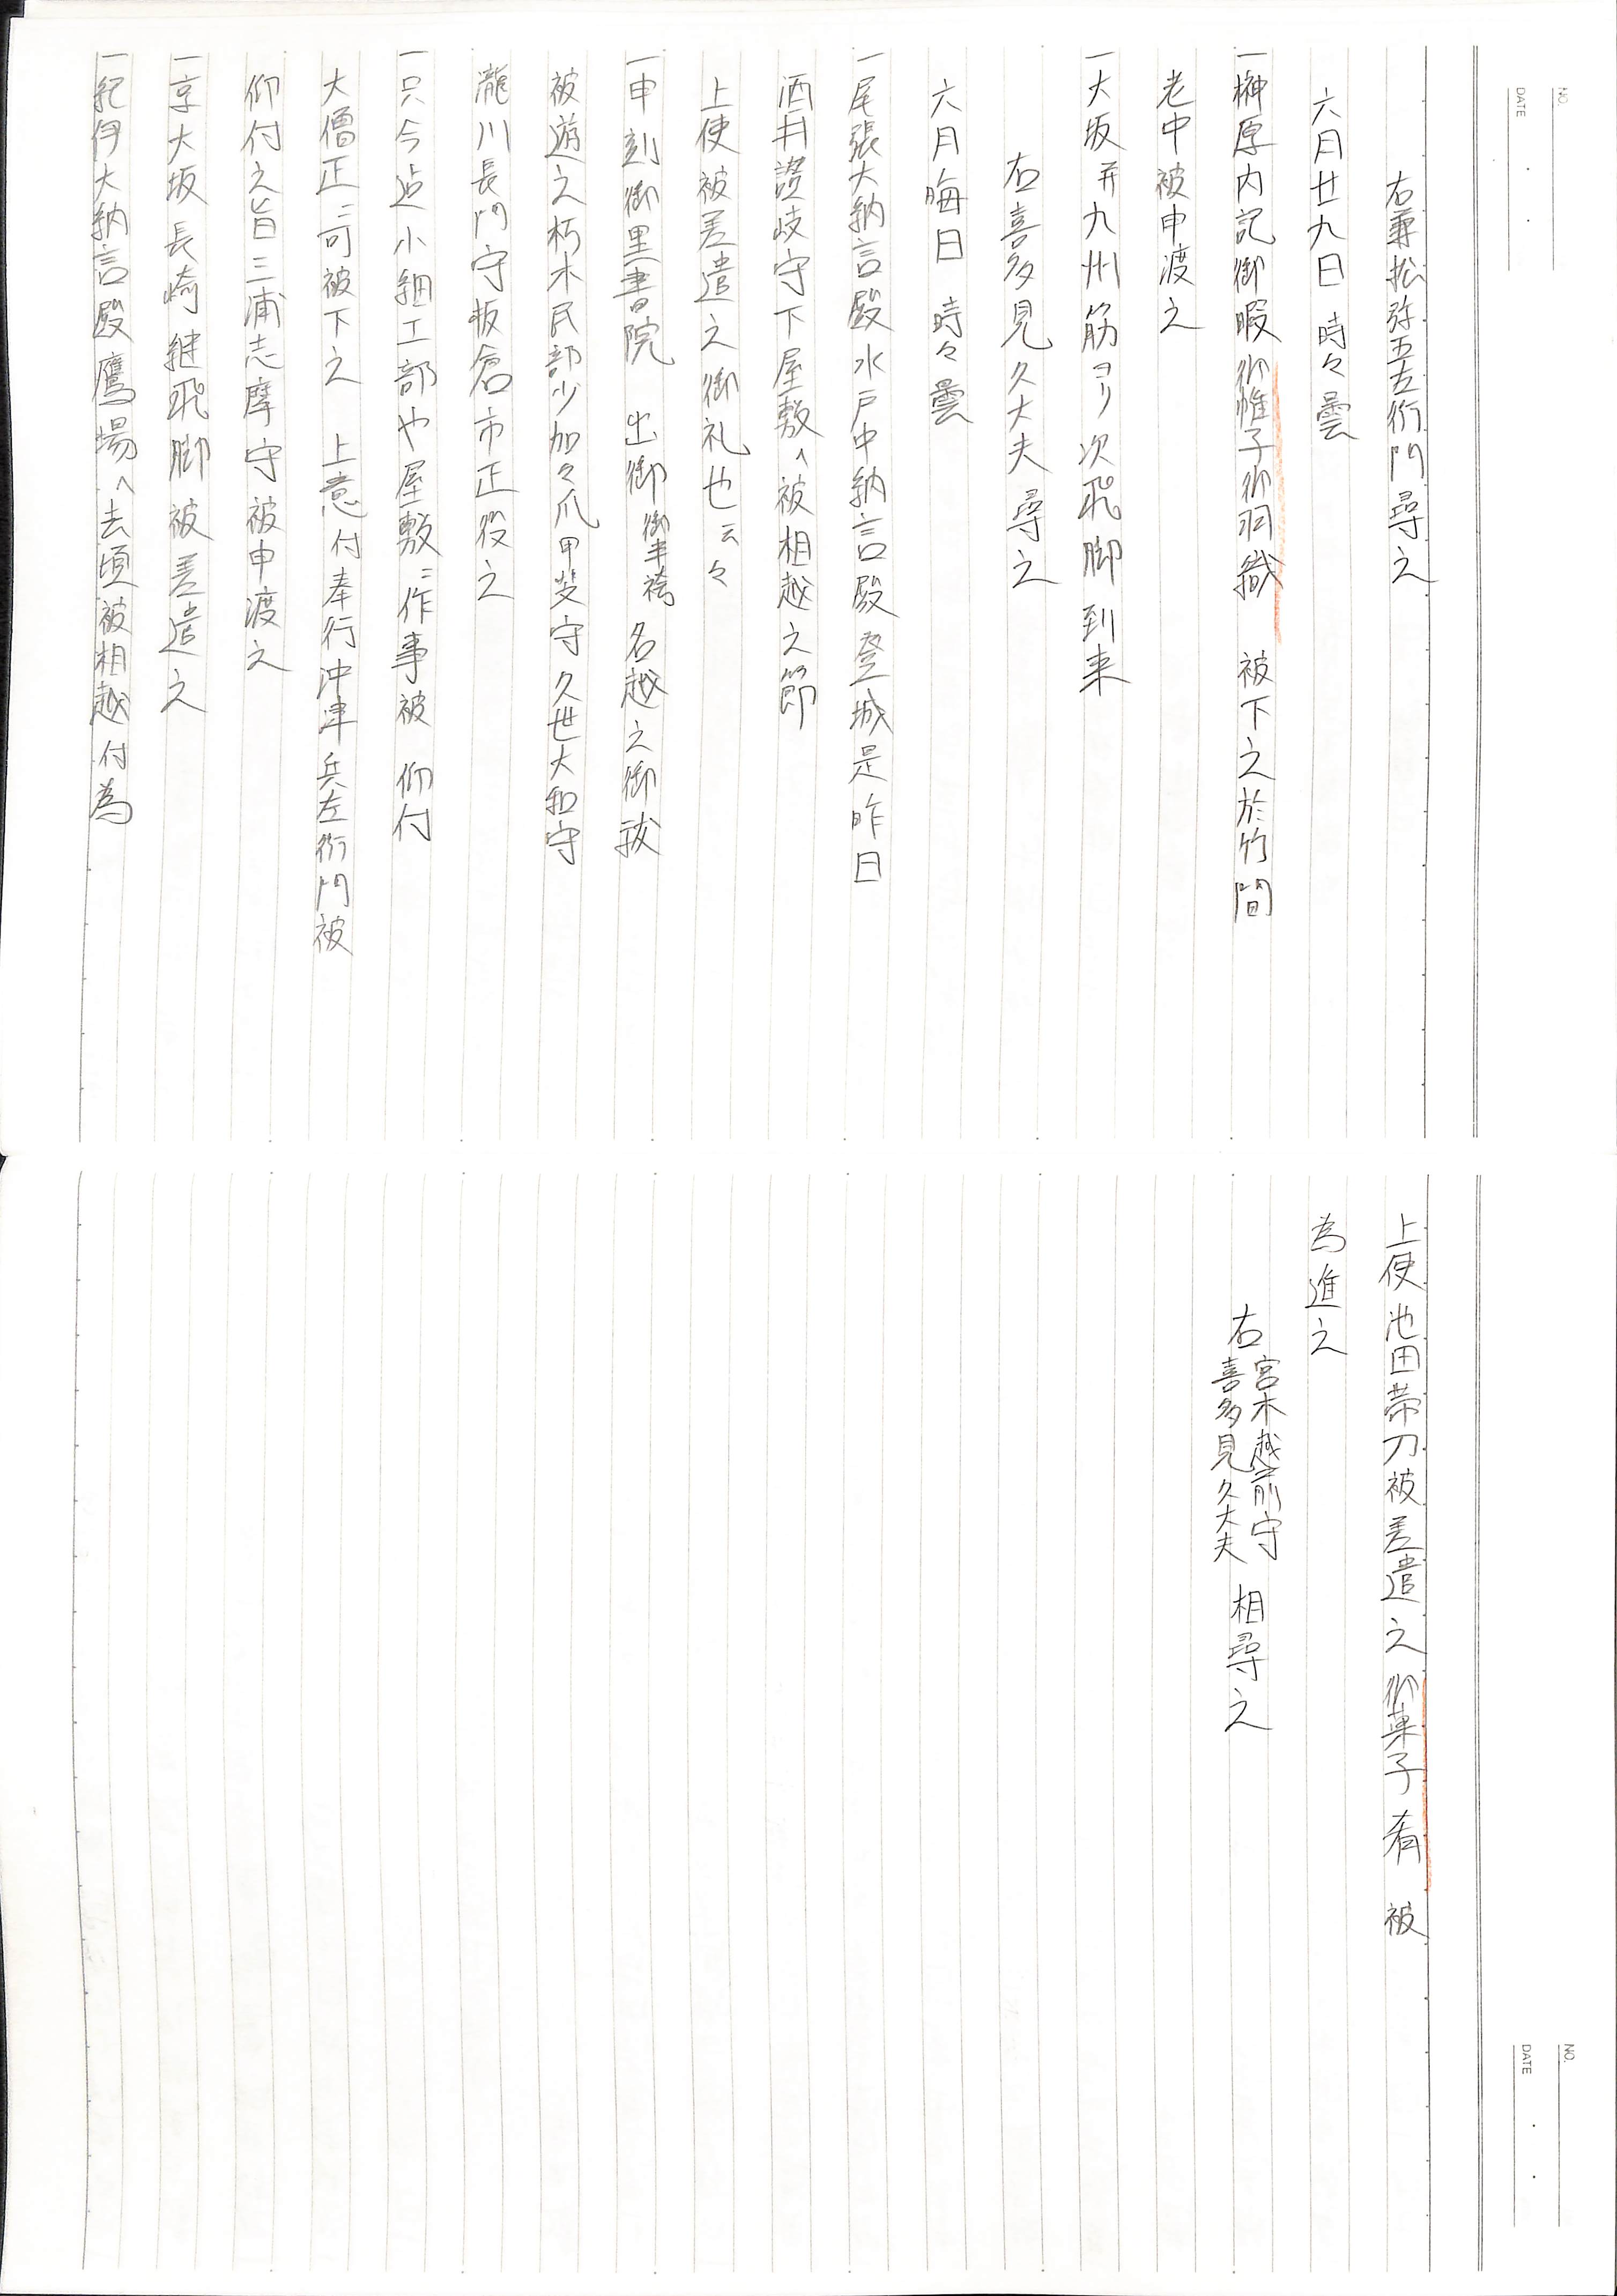 NO.
DATE
右兼松弥五左衛門尋之
六月廿九日 時々曇
一榊原内記御暇 御帷子御羽織 被下之於竹間
老中被申渡之
一大坂幷九州筋ヨリ次飛脚到来
右喜多見久大夫尋之
六月晦日 時々曇
一尾張大納言殿水戸中納言殿登城是昨日
酒井讃岐守下屋敷へ被相越之節
上使被差遣之御礼也云々
一申刻御黒書院 出御 御半袴 名越之御祓
被遊之朽木民部少加々爪甲斐守久世大和守
瀧川長門守板倉市正役之
一只今迠小細工部や屋敷ニ作事被 仰付
大僧正ニ可被下之 上意付奉行沖津兵左衛門被
仰付之旨三浦志摩守被申渡之
一京大坂長崎継飛脚被差遣之
一紀伊大納言殿鷹場へ去頃被相越付為
NO.
DATE
上使池田帯刀被差遣之 御菓子 肴 被
為進之
右 宮木越前守
喜多見久大夫 相尋之